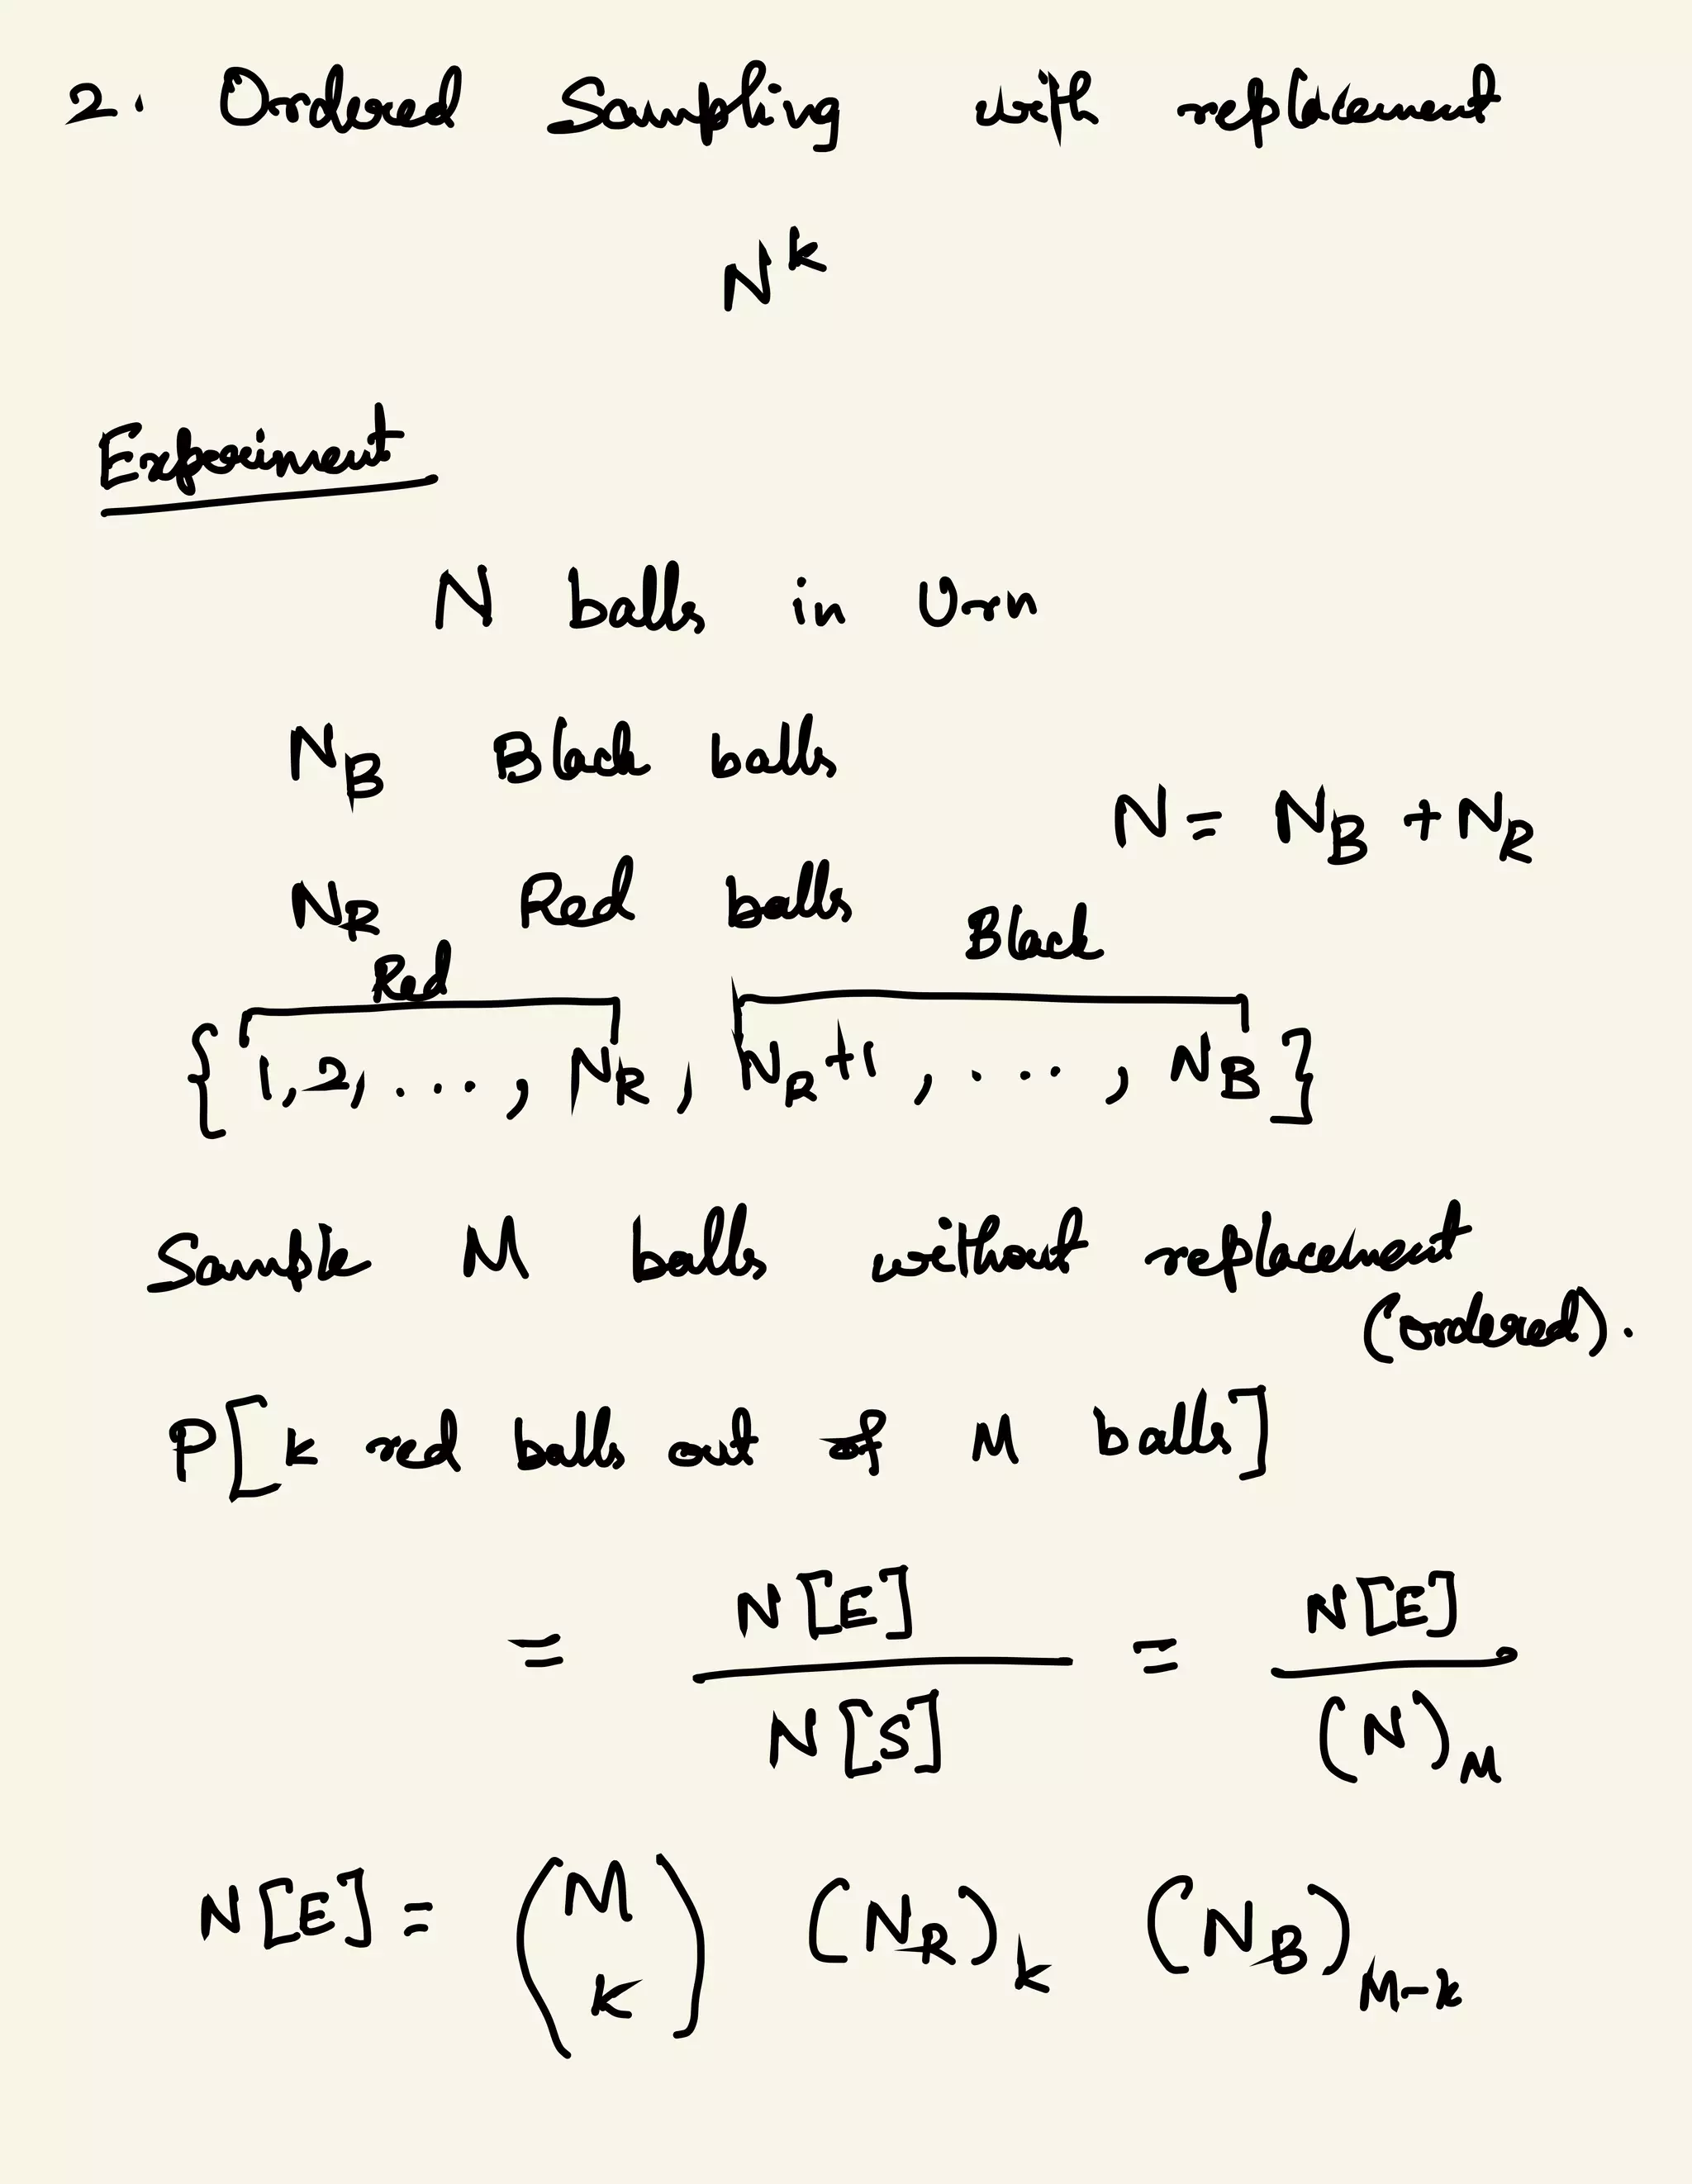 2. Ordered Sampling with replacement
N^k
Experiment
N balls in Urn
N_B Black balls
N = N_B + N_R
N_R Red balls
Red Black
{ 1, 2, ..., N_R, N_R+1, ..., N_B }
Sample M balls without replacement
(ordered).
P[k red balls out of M balls]
= N[E] / N[S] = N[E] / (N)_M
N[E] = (M k) (N_R)_k (N_B)_{M-k}